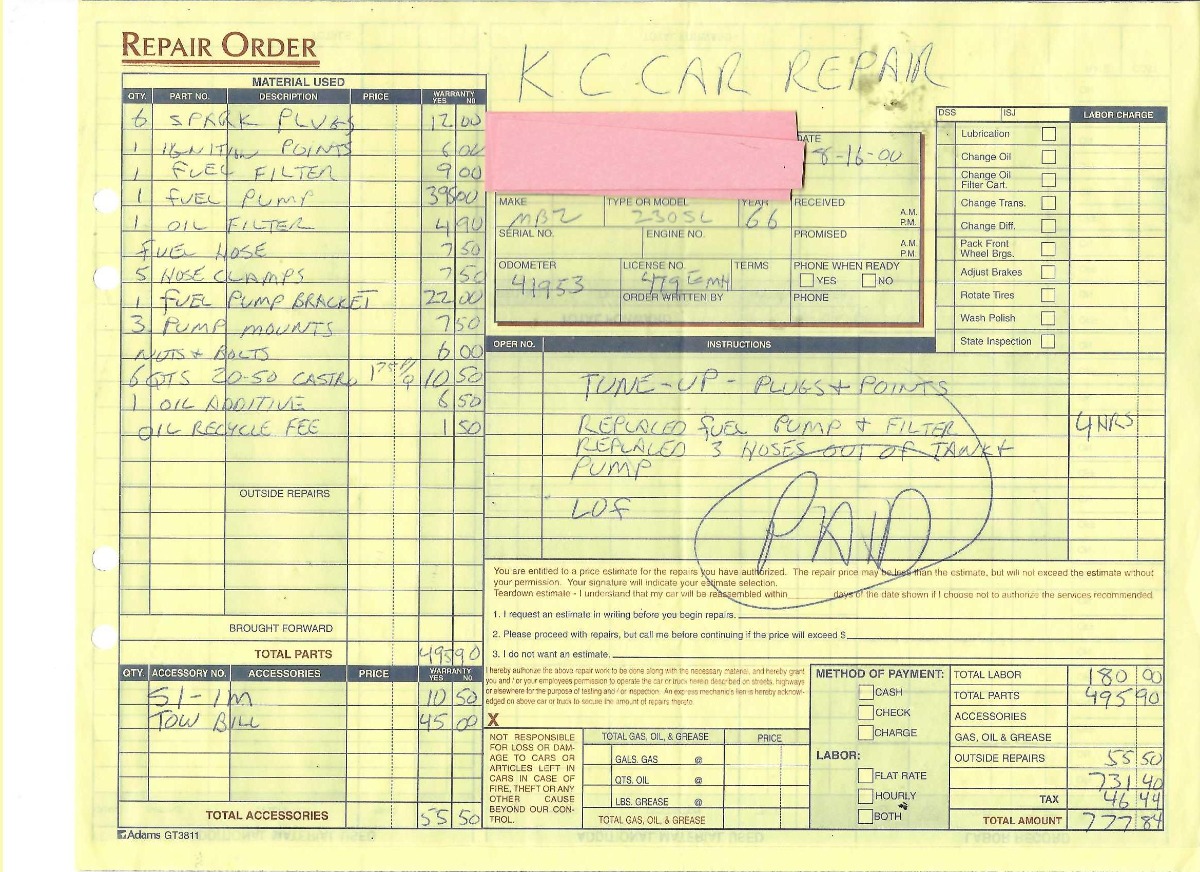 REPAIR ORDER
K C CAR REPAIR
MATERIAL USED
QTY. PART NO. DESCRIPTION PRICE WARRANTY YES NO
6 SPARK PLUGS 12 00
1 IGNITION POINTS 6 00
1 FUEL FILTER 9 00
1 FUEL PUMP 395 00
1 OIL FILTER 4 90
FUEL HOSE 7 50
5 HOSE CLAMPS 7 50
1 FUEL PUMP BRACKET 22 00
3 PUMP MOUNTS 7 50
NUTS & BOLTS 6 00
6 QTS 20-50 CASTRO 10 50
1 OIL ADDITIVE 6 50
OIL RECYCLE FEE 1 50
OUTSIDE REPAIRS
BROUGHT FORWARD
TOTAL PARTS 495 90
QTY. ACCESSORY NO. ACCESSORIES PRICE WARRANTY YES NO
S1-1M 10 50
TOW BILL 45 00
TOTAL ACCESSORIES 55 50
Adams GT3811
DATE
8-16-00
MAKE TYPE OR MODEL YEAR RECEIVED A.M. P.M.
MBZ 230SL 66
SERIAL NO. ENGINE NO. PROMISED A.M. P.M.
ODOMETER LICENSE NO. TERMS PHONE WHEN READY
41953 479 EMH YES NO
ORDER WRITTEN BY PHONE
DSS ISJ LABOR CHARGE
Lubrication
Change Oil
Change Oil
Filter Cart.
Change Trans.
Change Diff.
Pack Front
Wheel Brgs.
Adjust Brakes
Rotate Tires
Wash Polish
State Inspection
OPER NO. INSTRUCTIONS
TUNE-UP - PLUGS & POINTS
REPLACED FUEL PUMP & FILTER 4 HRS
REPLACED 3 HOSES OUT OF TANK &
PUMP
LOF
PAID
You are entitled to a price estimate for the repairs you have authorized. The repair price may be less than the estimate, but will not exceed the estimate without
your permission. Your signature will indicate your estimate selection.
Teardown estimate - I understand that my car will be reassembled within days of the date shown if I choose not to authorize the services recommended.
1. I request an estimate in writing before you begin repairs.
2. Please proceed with repairs, but call me before continuing if the price will exceed $
3. I do not want an estimate.
I hereby authorize the above repair work to be done along with the necessary material, and hereby grant
you and / or your employees permission to operate the car or truck herein described on streets, highways
or elsewhere for the purpose of testing and / or inspection. An express mechanic's lien is hereby acknowl-
edged on above car or truck to secure the amount of repairs thereto.
X
NOT RESPONSIBLE
FOR LOSS OR DAM-
AGE TO CARS OR
ARTICLES LEFT IN
CARS IN CASE OF
FIRE, THEFT OR ANY
OTHER CAUSE
BEYOND OUR CON-
TROL.
TOTAL GAS, OIL, & GREASE PRICE
GALS. GAS @
QTS. OIL @
LBS. GREASE @
TOTAL GAS, OIL, & GREASE
METHOD OF PAYMENT:
CASH
CHECK
CHARGE
LABOR:
FLAT RATE
HOURLY
BOTH
TOTAL LABOR 180 00
TOTAL PARTS 495 90
ACCESSORIES
GAS, OIL & GREASE
OUTSIDE REPAIRS 55 50
731 40
TAX 46 44
TOTAL AMOUNT 777 84